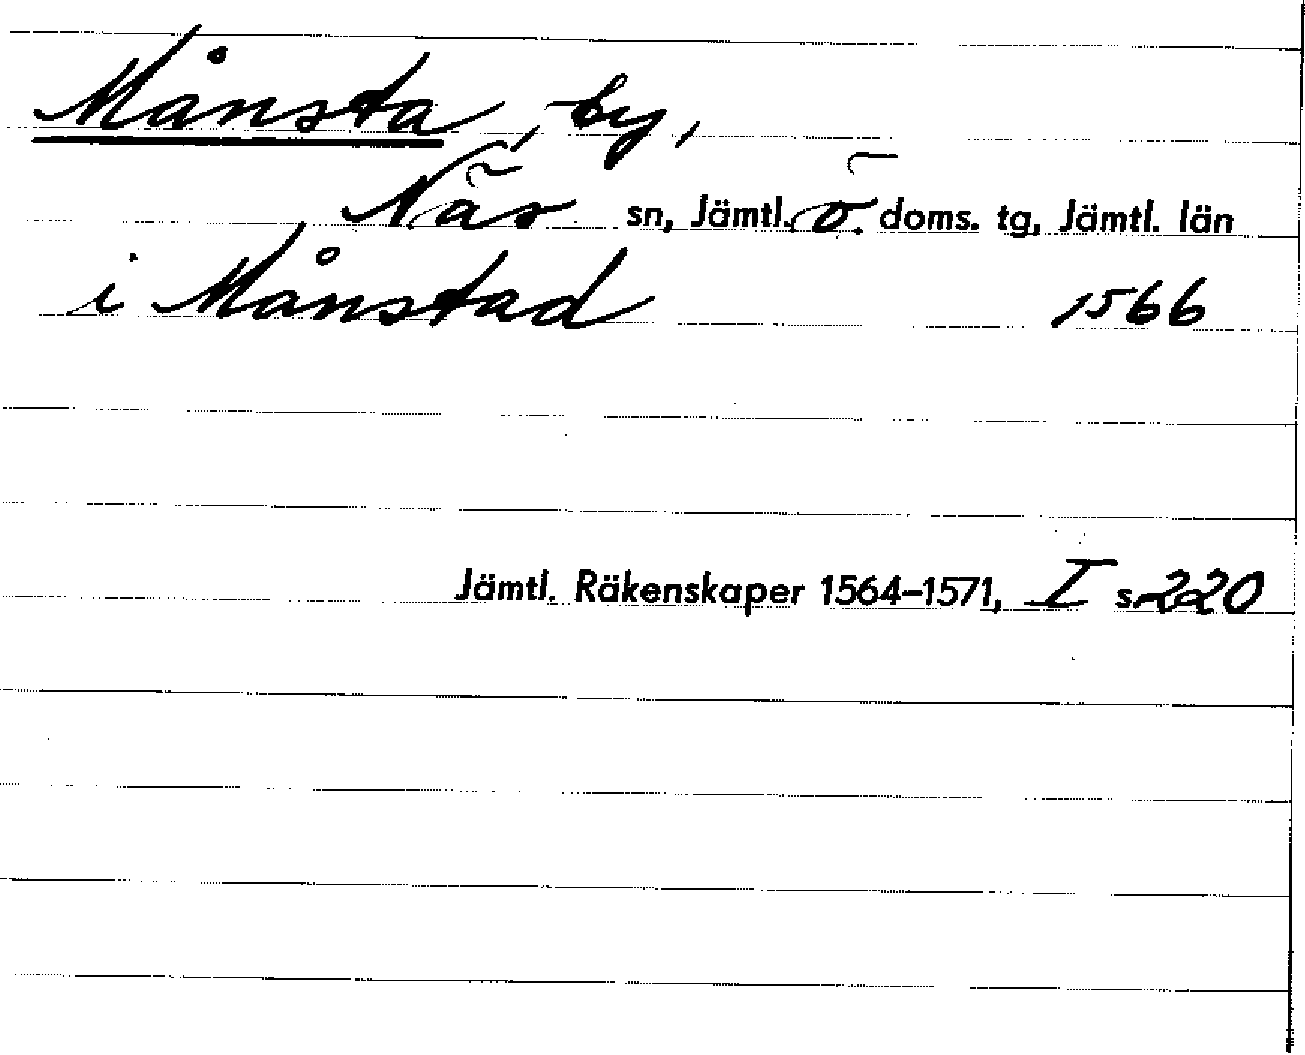 Månsta, by,
Näs sn, Jämtl. ö. doms. tg, Jämtl. län
i Månstad 1566
Jämtl. Räkenskaper 1564–1571, I s. 220